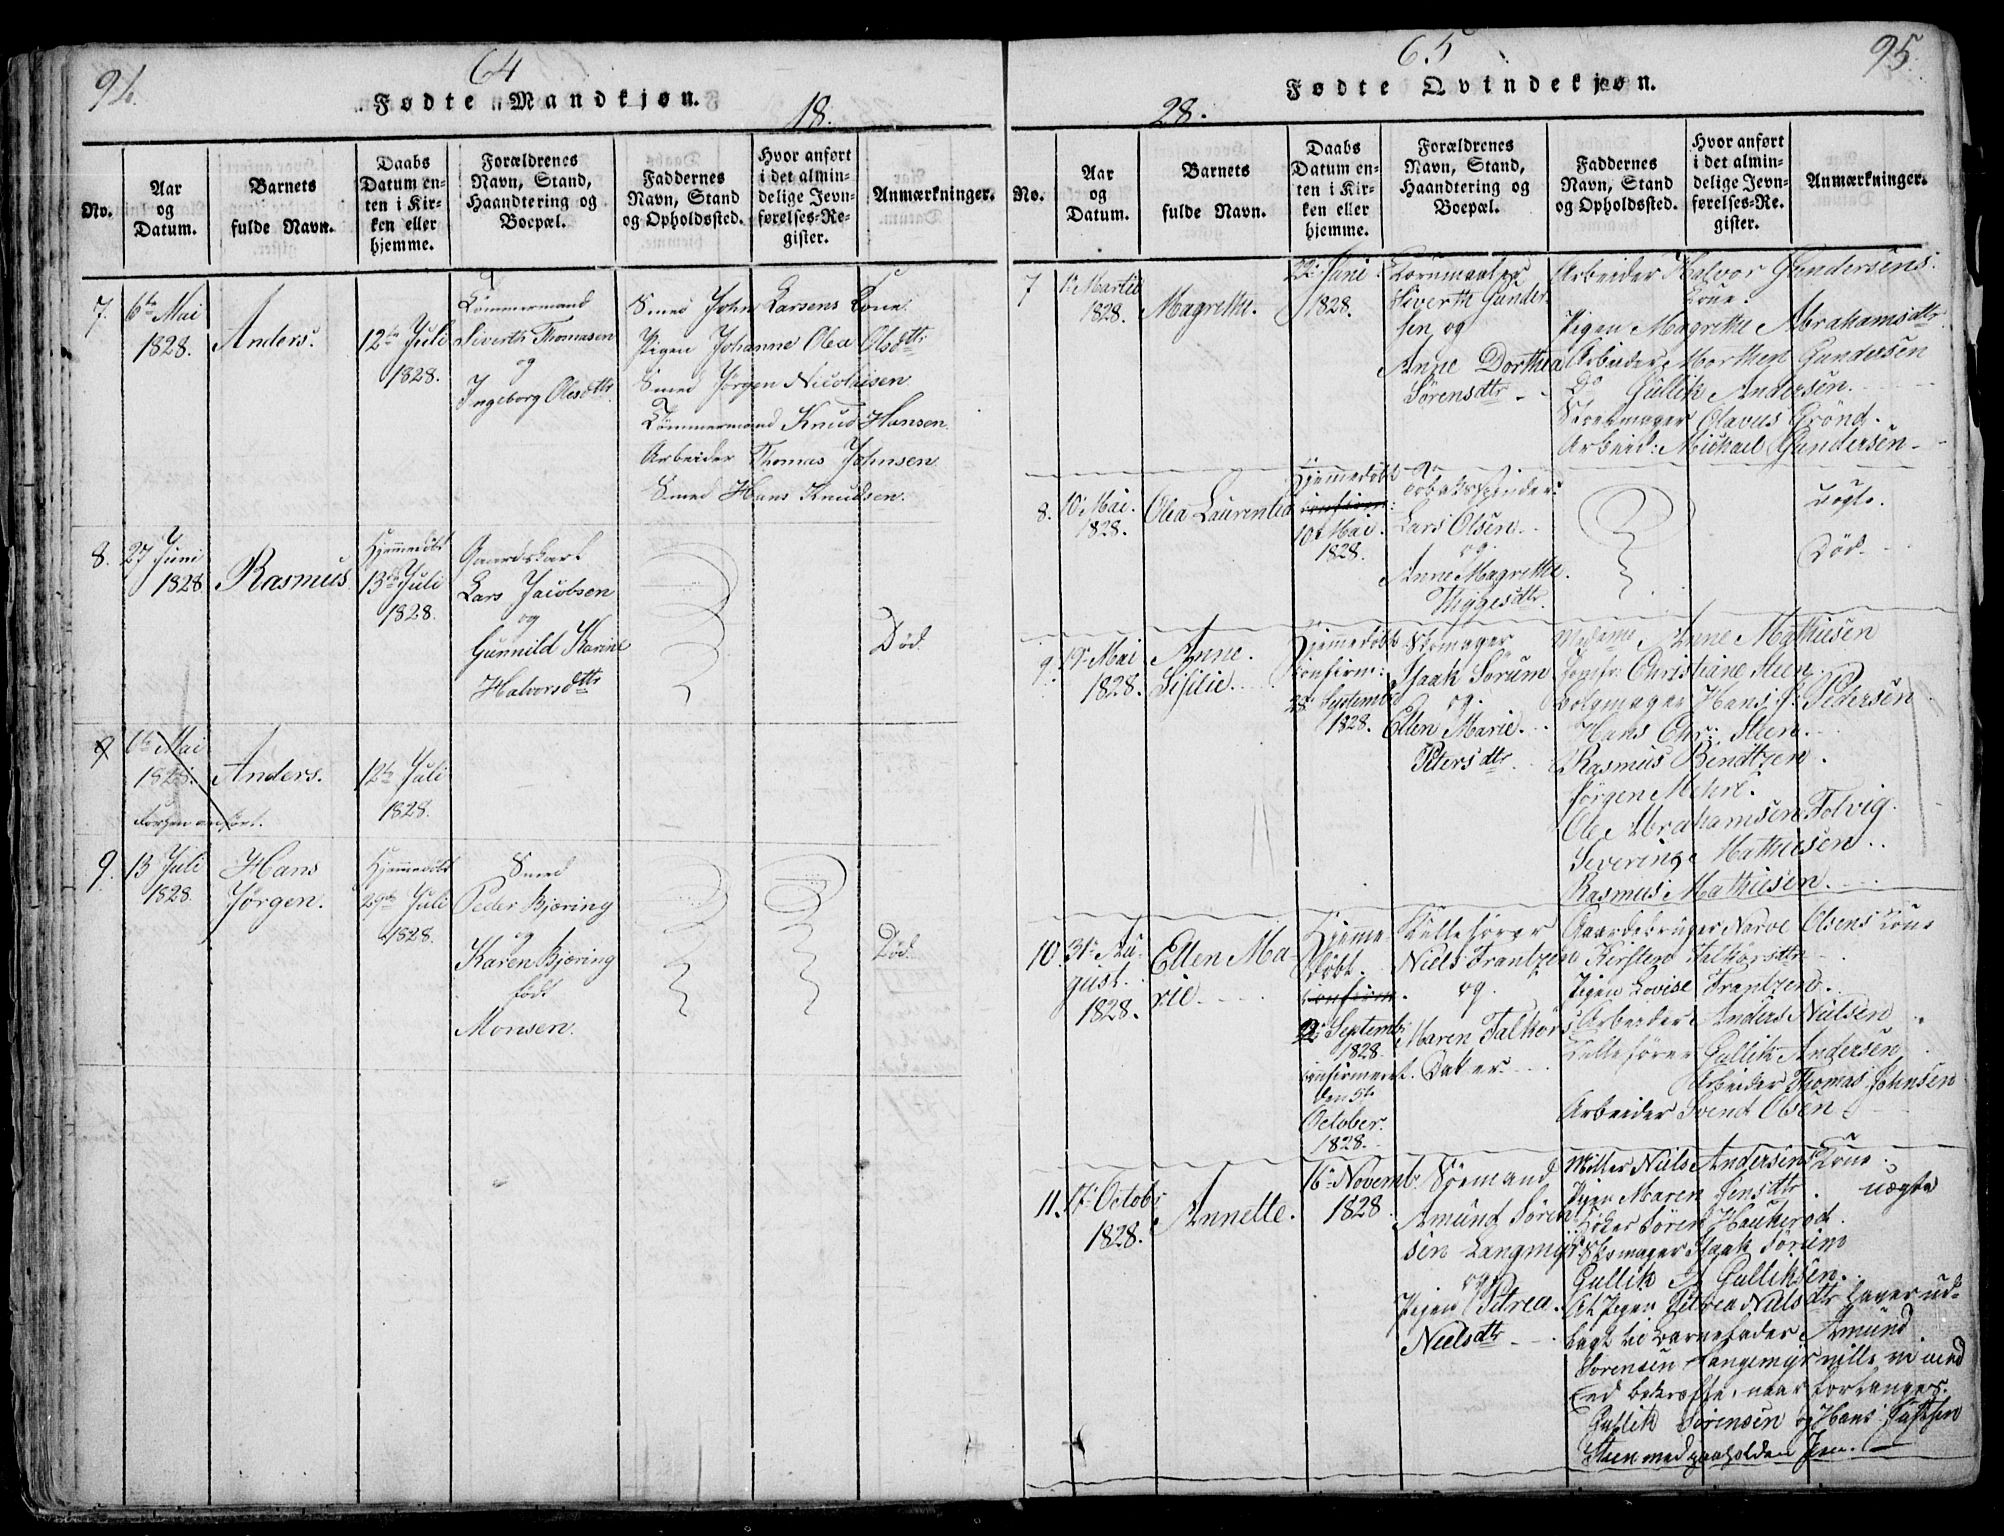 94.
64
Fødte Mandkjøn.
18.
No.
Aar
og
Datum.
Barnets
fulde Navn.
Daabs
Datum en-
ten i Kir-
ken eller
hjemme.
Forældrenes
Navn, Stand,
Haandtering og
Boepæl.
Faddernes
Navn, Stand
og Opholdssted.
Hvor anført
i det almin-
delige Jevn-
førelses-Re-
gister.
Anmærkninger.
7.
6te Mai
1828.
Anders.
12te Juli
1828.
Tömmermand
Siverth Thomasen
og
Ingeborg Olesdttr
Smed John Larsens Kone
Pigen Johanne Olea Olsdttr
Smed Jørgen Nicolaisen
Tömmermand Knud Hansen
Arbeider Thomas Johnsen
Smed Hans Knudsen.
8.
27 Juni
1828
Rasmus
Hjemmedöbt
13de Juli
1828.
Gaardskarl
Lars Jacobsen
og
Gunnild Karine
Halvorsdttr
Död
9
6te Mai
1828.
Anders.
12te Juli
1828.
Forhen anfört.
9.
13 Juli
1828.
Hans
Jørgen.
Hjemmedöbt
29de Juli
1828.
Smed
Peder Bjøring
og
Karen Bjøring
født
Monsen.
Död.
65
95.
Fødte Qvindekjøn.
28.
No.
Aar
og
Datum.
Barnets
fulde Navn.
Daabs
Datum en-
ten i Kir-
ken eller
hjemme.
Forældrenes
Navn, Stand,
Haandtering og
Boepæl.
Faddernes
Navn, Stand
og Opholdssted.
Hvor anført
i det almin-
delige Jevn-
førelses-Re-
gister.
Anmærkninger.
7
1te Martii
1828.
Magrethe.
22de Juni
1828.
Kornmaaler
Siverth Gunder
sen og
Anne Dorthea
Sørensdtr
Arbeider Halvor Gundersens
Kone.
Pigen Magrethe Abrahamsdtr
Arbeider Morthen Gundersen
Do Gullik Andersen.
Skremager Olavus Grönd.
Arbeid: Michael Gundersen
8.
10de Mai.
1828.
Olea Laurentia
Hjemmedöbt
confirm:
10de Mai.
1828.
Tobaksspinder
Lars Olsen
og.
Anne Magrethe.
Thygesdtr.
uægte.
Död.
9.
Mai
1828.
Anne.
Sisilie.
Hjemmedöbt
confirm:
28de September
1828.
Skomager
Isaak Sørum
og.
Ellen Marie.
Petersdtr
Madame Anne Mathiesen
Jomfr: Christiane Steen.
Hans P. Pedersen
Hans Chr: Steen.
Rasmus Bendtzen.
Jørgen Mehre.
Ole Abrahamsen Folvig.
Severin Mathiesen.
Rasmus Mathiesen.
10.
31te Au-
gust.
1828.
Ellen Ma-
rie
Hjeme
döbt.
confirm.
Septemb:
1828.
confirmeret.
den 5te
October.
1828.
Kulleförer
Niels Frantzen
og.
Maren Falkors
Datter.
Gaardsbruger Narve Olsens Kone
Kirsten Falkorsdtr
Pigen Lovise Frantzen.
Arbeider Anders Nielsen
Kulleförer Gullik Andersen
Arbeider Thomas Johnsen
Arbeider Svend Olsen.
11.
17de Octobr
1828.
Annette.
16de Novemb.
1828.
Sömand
Amund Sören
sen Langmyr
og
Pigen Petrea.
Nielsdtr
Möller Niels Andersens Kone.
Pigen Maren Jensdtr
Søren Haukerød.
Skomager Isaak Sørum
Gullik Gulliksen.
At Pigen Petrea Nielsdtr haver ud-
lagt til Barnefader Amund
Sørensen Langemyr ville vi med
Eed bekræfte, naar forlanges.
Gullik Sørensen og Hans
Steen med paaholden Pen.
uægte